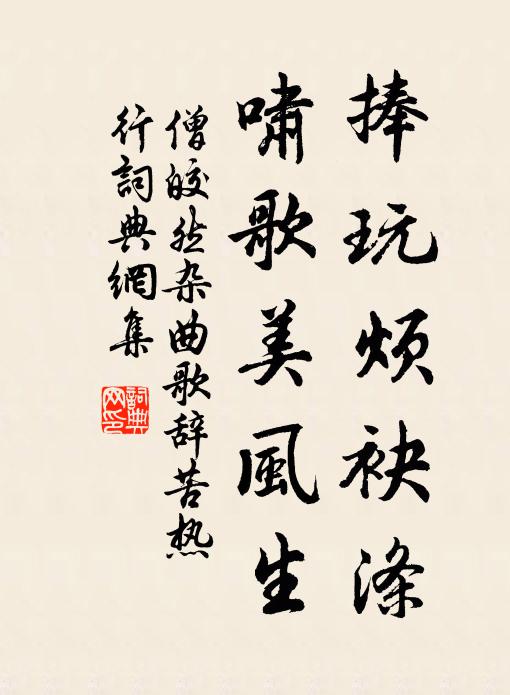 捧玩烦袂涤
啸歌美風生
僧皎然杂曲歌辞苦热
行詞典網集
詞典网印